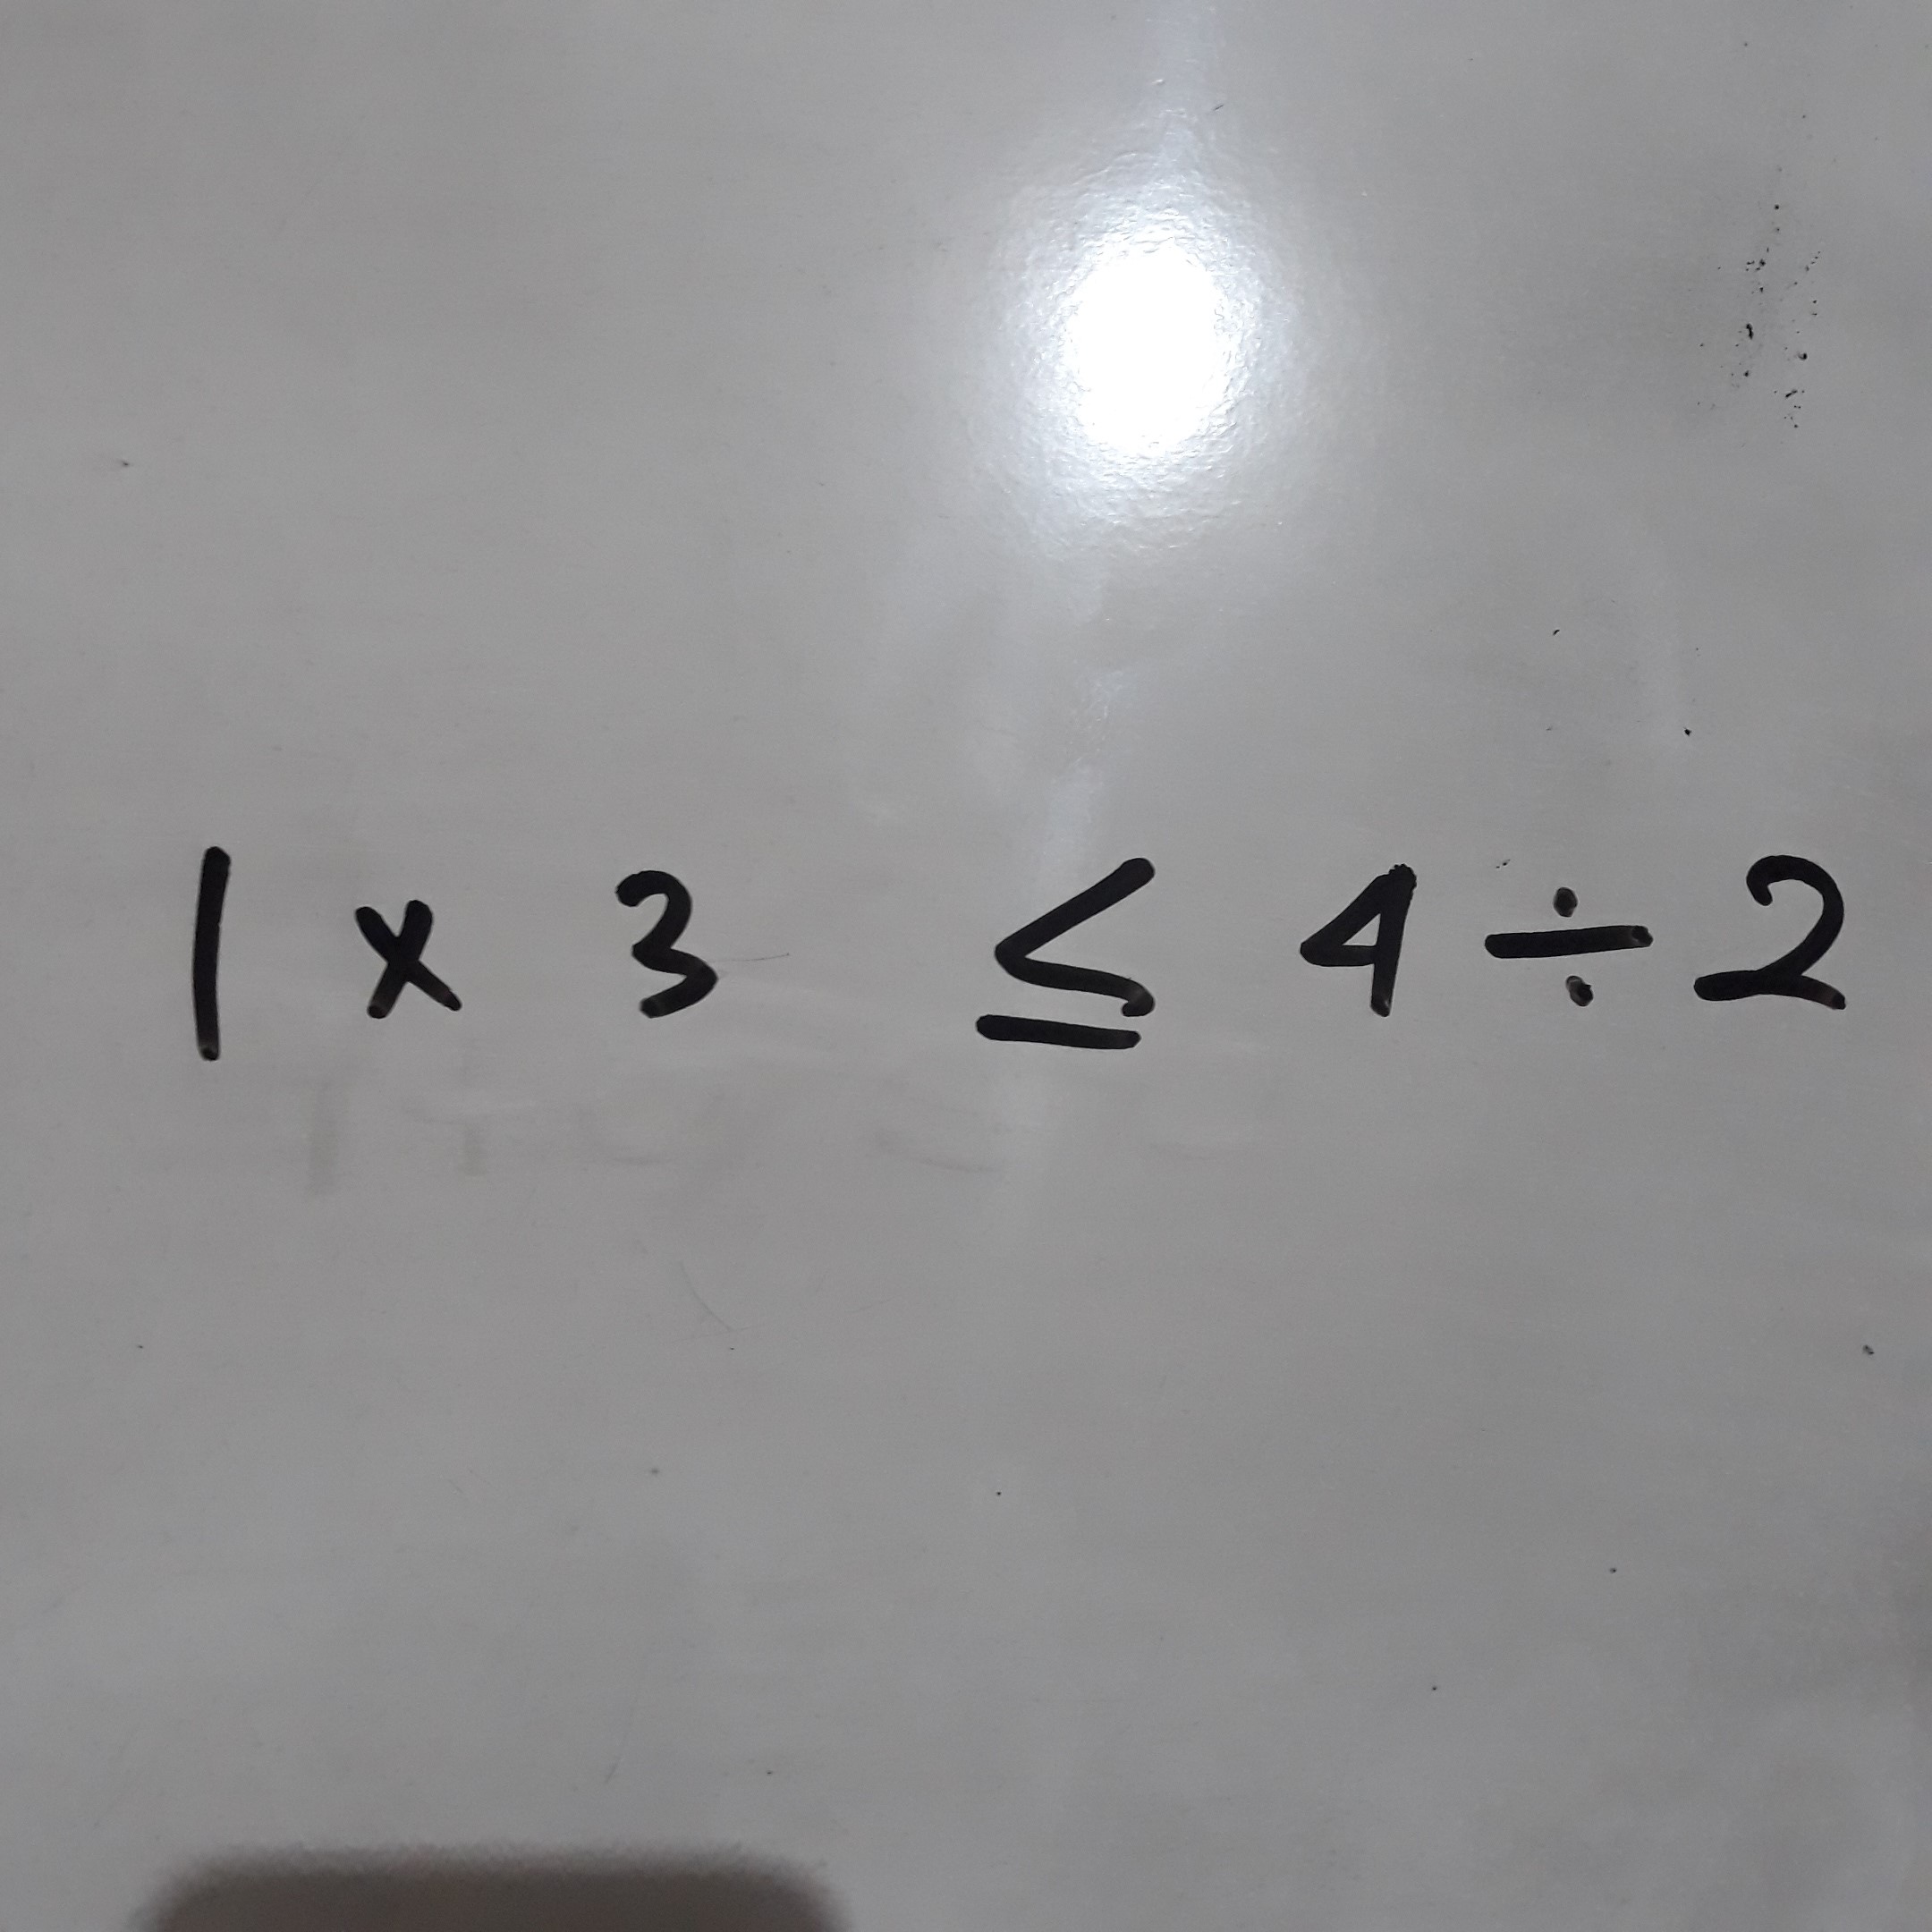 1 x 3 ≤ 4 ÷ 2